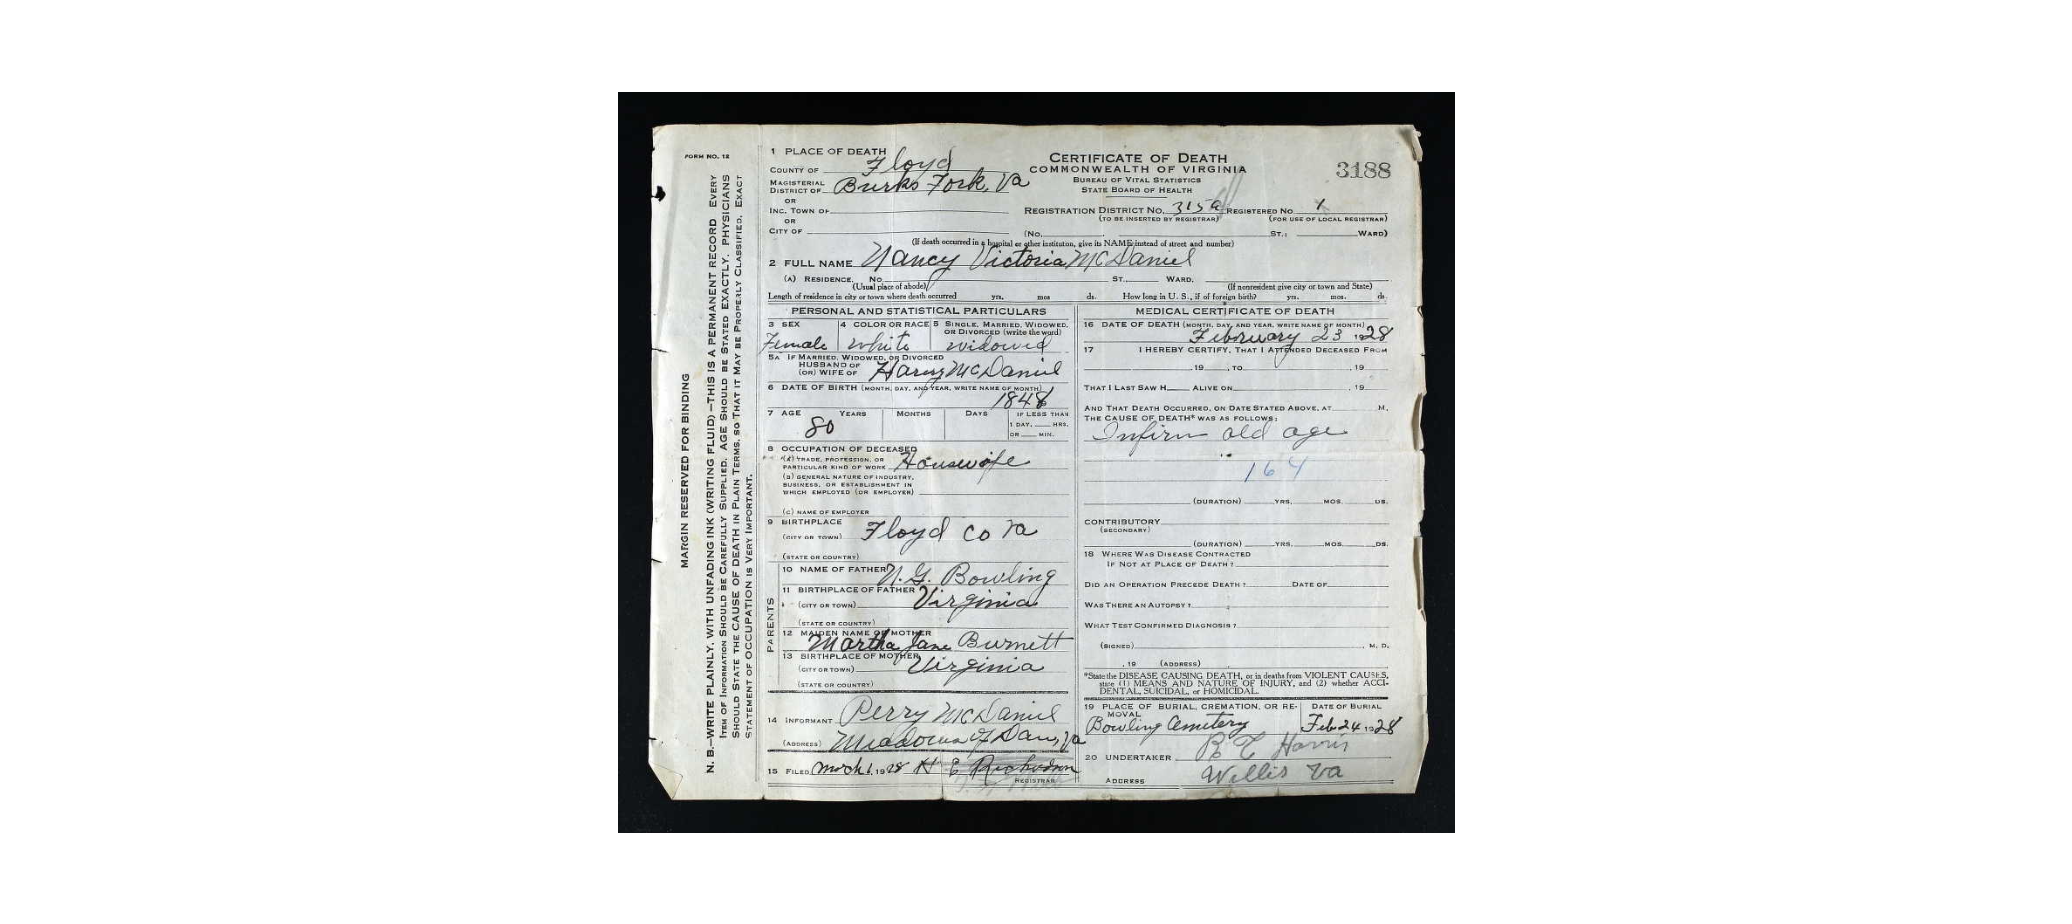 FORM NO. 12
MARGIN RESERVED FOR BINDING
N. B.—WRITE PLAINLY, WITH UNFADING INK (WRITING FLUID)—THIS IS A PERMANENT RECORD EVERY
ITEM OF INFORMATION SHOULD BE CAREFULLY SUPPLIED. AGE SHOULD BE STATED EXACTLY. PHYSICIANS
SHOULD STATE THE CAUSE OF DEATH IN PLAIN TERMS, SO THAT IT MAY BE PROPERLY CLASSIFIED. EXACT
STATEMENT OF OCCUPATION IS VERY IMPORTANT.
1 PLACE OF DEATH
COUNTY OF Floyd
MAGISTERIAL
DISTRICT OF Burks Fork, Va
OR
INC. TOWN OF
OR
CITY OF
CERTIFICATE OF DEATH
COMMONWEALTH OF VIRGINIA
BUREAU OF VITAL STATISTICS
STATE BOARD OF HEALTH
3188
REGISTRATION DISTRICT NO. 315a REGISTERED NO 1
(TO BE INSERTED BY REGISTRAR) (FOR USE OF LOCAL REGISTRAR)
(NO. ST.; WARD)
(If death occurred in a hospital or other institution, give its NAME instead of street and number)
2 FULL NAME Nancy Victoria McDaniel
(A) RESIDENCE. NO ST., WARD.
(Usual place of abode) (If nonresident give city or town and State)
Length of residence in city or town where death occurred yrs. mos ds. How long in U. S., if of foreign birth? yrs. mos. ds.
PERSONAL AND STATISTICAL PARTICULARS
3 SEX 4 COLOR OR RACE 5 SINGLE, MARRIED, WIDOWED,
OR DIVORCED (write the word)
Female white widowed
5A IF MARRIED, WIDOWED, OR DIVORCED
HUSBAND OF
(OR) WIFE OF Harvy McDaniel
6 DATE OF BIRTH (MONTH, DAY, AND YEAR, WRITE NAME OF MONTH)
1848
7 AGE YEARS MONTHS DAYS IF LESS THAN
80 1 DAY, HRS.
OR MIN.
8 OCCUPATION OF DECEASED
(A) TRADE, PROFESSION, OR
PARTICULAR KIND OF WORK Housewife
(B) GENERAL NATURE OF INDUSTRY,
BUSINESS, OR ESTABLISHMENT IN
WHICH EMPLOYED (OR EMPLOYER)
(C) NAME OF EMPLOYER
9 BIRTHPLACE
(CITY OR TOWN) Floyd Co Va
(STATE OR COUNTRY)
PARENTS
10 NAME OF FATHER N. G. Bowling
11 BIRTHPLACE OF FATHER
(CITY OR TOWN) Virginia
(STATE OR COUNTRY)
12 MAIDEN NAME OF MOTHER
Martha Jane Burnett
13 BIRTHPLACE OF MOTHER
(CITY OR TOWN) Virginia
(STATE OR COUNTRY)
14 INFORMANT Perry McDaniel
(ADDRESS) Meadows of Dan, Va
15 FILED March 1, 1928 H E Richardson
REGISTRAR
MEDICAL CERTIFICATE OF DEATH
16 DATE OF DEATH (MONTH, DAY, AND YEAR, WRITE NAME OF MONTH)
February 23 1928
17 I HEREBY CERTIFY, THAT I ATTENDED DECEASED FROM
, 19 , TO , 19
THAT I LAST SAW H ALIVE ON , 19
AND THAT DEATH OCCURRED, ON DATE STATED ABOVE, AT M.
THE CAUSE OF DEATH* WAS AS FOLLOWS:
Infirm old age
164
(DURATION) YRS. MOS. DS.
CONTRIBUTORY
(SECONDARY)
(DURATION) YRS. MOS. DS.
18 WHERE WAS DISEASE CONTRACTED
IF NOT AT PLACE OF DEATH?
DID AN OPERATION PRECEDE DEATH? DATE OF
WAS THERE AN AUTOPSY?
WHAT TEST CONFIRMED DIAGNOSIS?
(SIGNED) M. D.
, 19 (ADDRESS)
*State the DISEASE CAUSING DEATH, or in deaths from VIOLENT CAUSES,
state (1) MEANS AND NATURE OF INJURY, and (2) whether ACCI-
DENTAL, SUICIDAL, or HOMICIDAL.
19 PLACE OF BURIAL, CREMATION, OR RE-
MOVAL DATE OF BURIAL
Bowling Cemetery Feb 24 1928
20 UNDERTAKER Harris
ADDRESS Willis Va